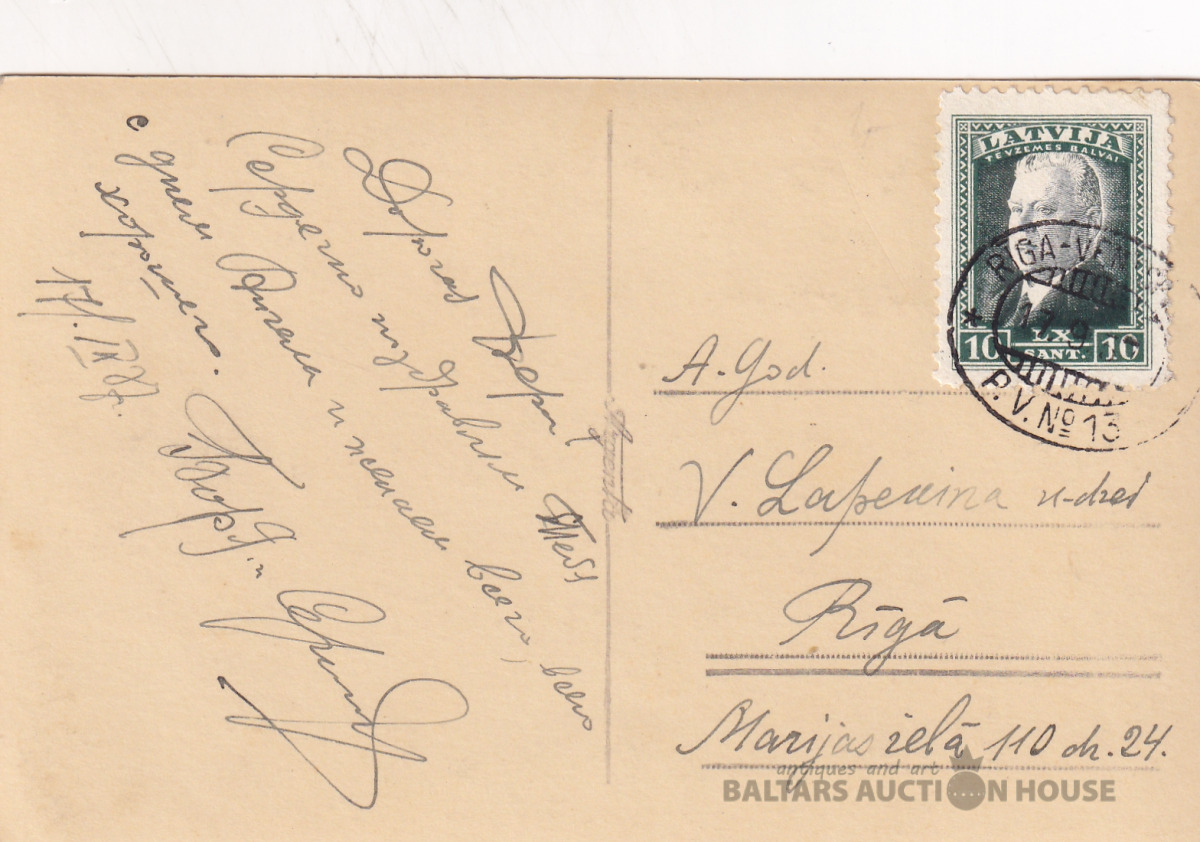 Дорогая Вера!
Сердечно поздравим Тебя
с днем Ангела и желаем всего, всего
хорошего.
17/IX 37.
LATVIJA
TĒVZEMES BALVAI
LX
10 SANT. 10
RĪGA
17 9
P.V. № 13
A. God.
V. Lapekina k-dzei
Rīgā
Marijas ielā 110 dz. 24.
antiques and art
BALTARS AUCTION HOUSE